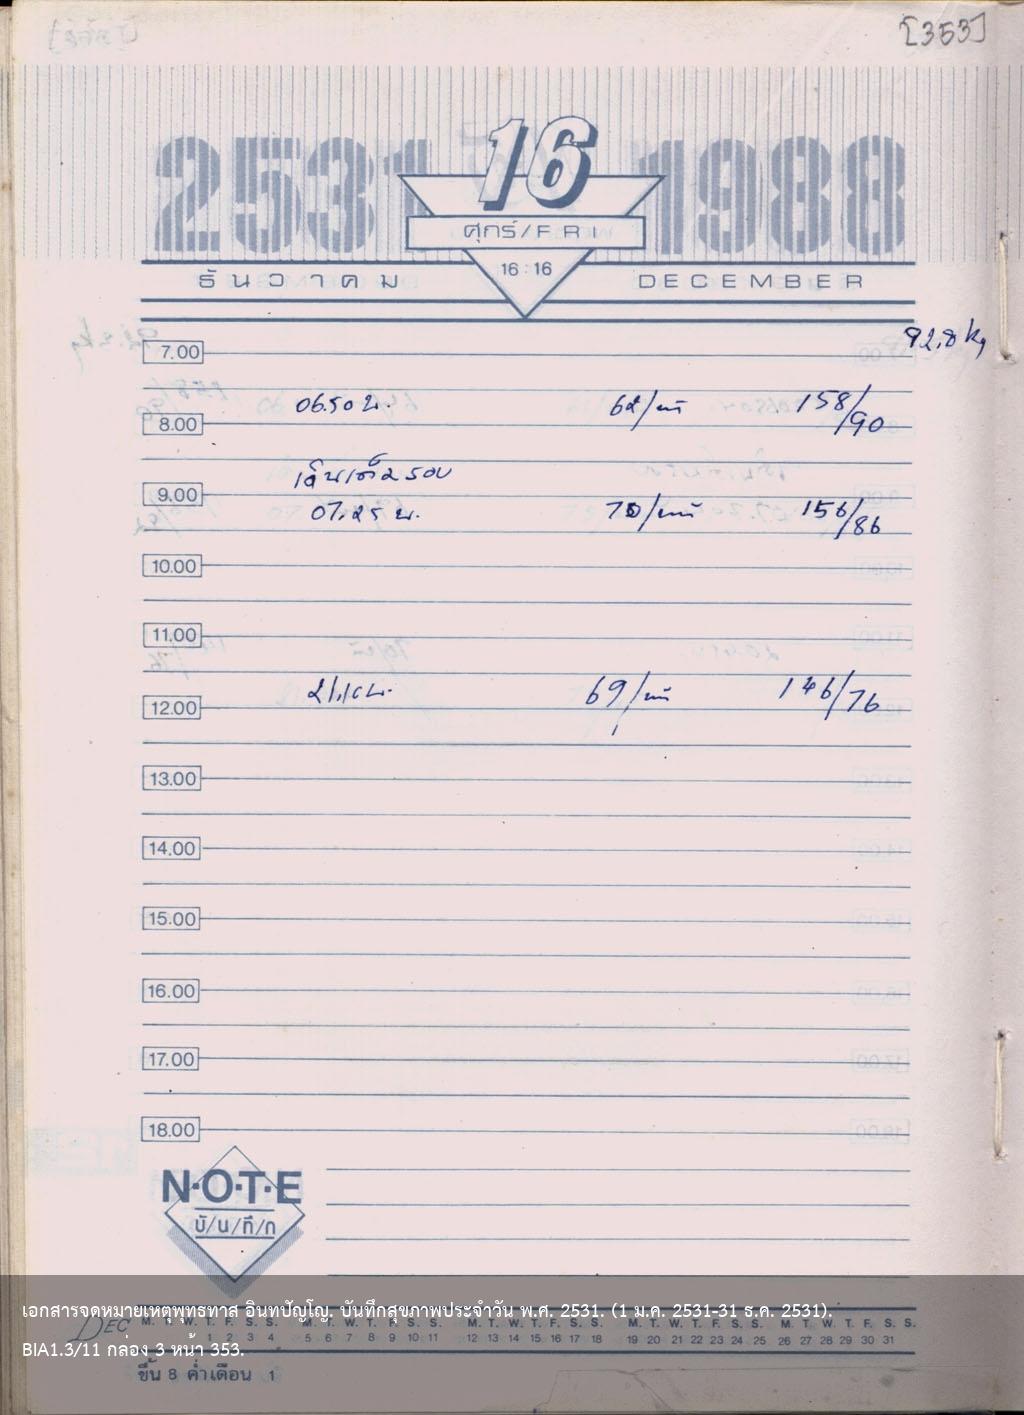 [353]
2531 16 1988
ศุกร์/FRI
16:16
ธันวาคม DECEMBER
92.8 kg
7.00
06.50 น. 62/นาที 158/90
8.00
9.00
07.25 น. 156/86
10.00
11.00
69/นาที 146/76
12.00
13.00
14.00
15.00
16.00
17.00
18.00
N·O·T·E
บั/น/ทึ/ก
เอกสารจดหมายเหตุพุทธทาส อินทปัญโญ. บันทึกสุขภาพประจำวัน พ.ศ. 2531. (1 ม.ค. 2531-31 ธ.ค. 2531).
DEC M. T. W. T. F. S. S. M. T. W. T. F. S. S. M. T. W. T. F. S. S. M. T. W. T. F. S. S. M. T. W. T. F. S. S.
1 2 3 4 5 6 7 8 9 10 11 12 13 14 15 16 17 18 19 20 21 22 23 24 25 26 27 28 29 30 31
BIA1.3/11 กล่อง 3 หน้า 353.
ขึ้น 8 ค่ำเดือน 1